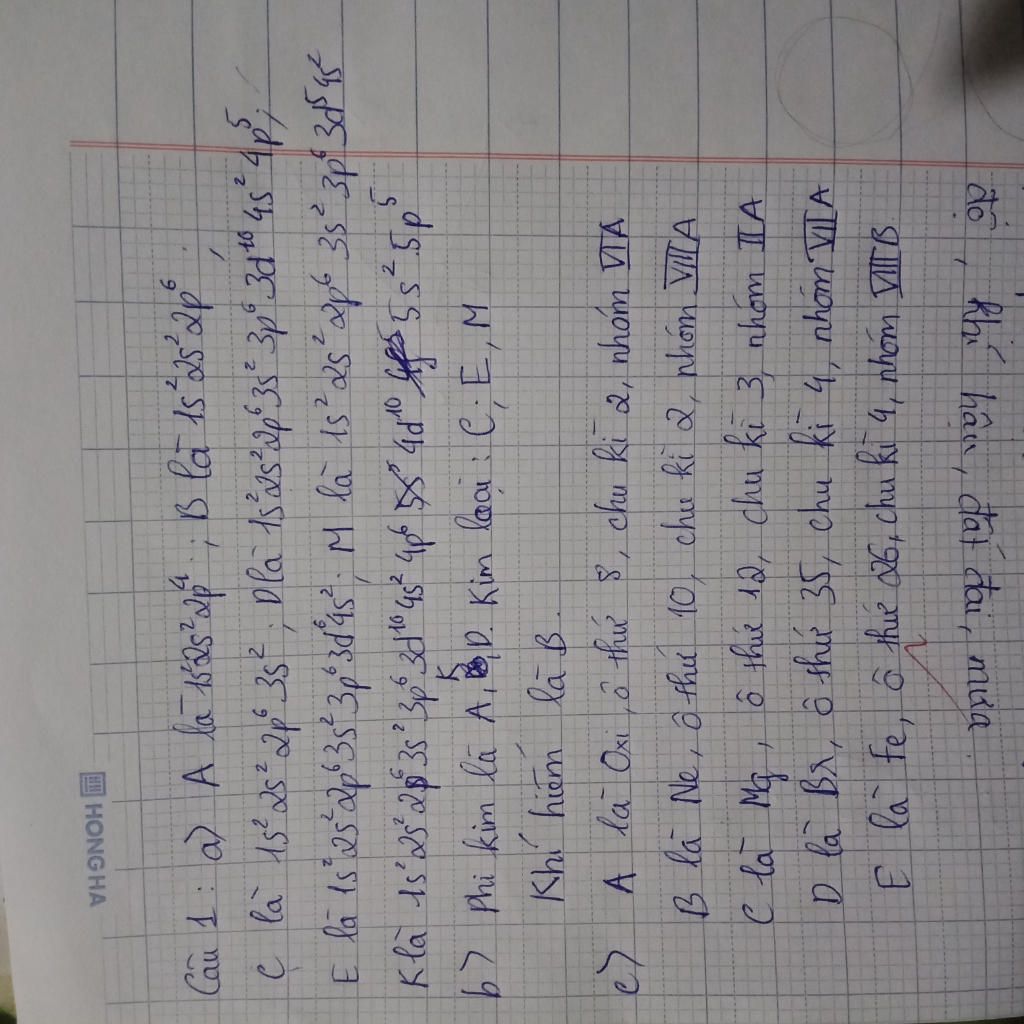 HONG HA
Câu 1: a) A là 1s²2s²2p⁴; B là 1s²2s²2p⁶;
C là 1s²2s²2p⁶3s²; D là 1s²2s²2p⁶3s²3p⁶3d¹⁰4s²4p⁵;
E là 1s²2s²2p⁶3s²3p⁶3d⁶4s²; M là 1s²2s²2p⁶3s²3p⁶3d⁵4s²
K là 1s²2s²2p⁶3s²3p⁶3d¹⁰4s²4p⁶4d¹⁰5s²5p⁵
b) Phi kim là A, K, D. Kim loại: C, E, M
Khí hiếm là B.
c) A là Oxi, ô thứ 8, chu kì 2, nhóm VIA
B là Ne, ô thứ 10, chu kì 2, nhóm VIIIA
C là Mg, ô thứ 12, chu kì 3, nhóm IIA
D là Br, ô thứ 35, chu kì 4, nhóm VIIA
E là Fe, ô thứ 26, chu kì 4, nhóm VIIIB
độ, khí hậu, đất đai, mưa